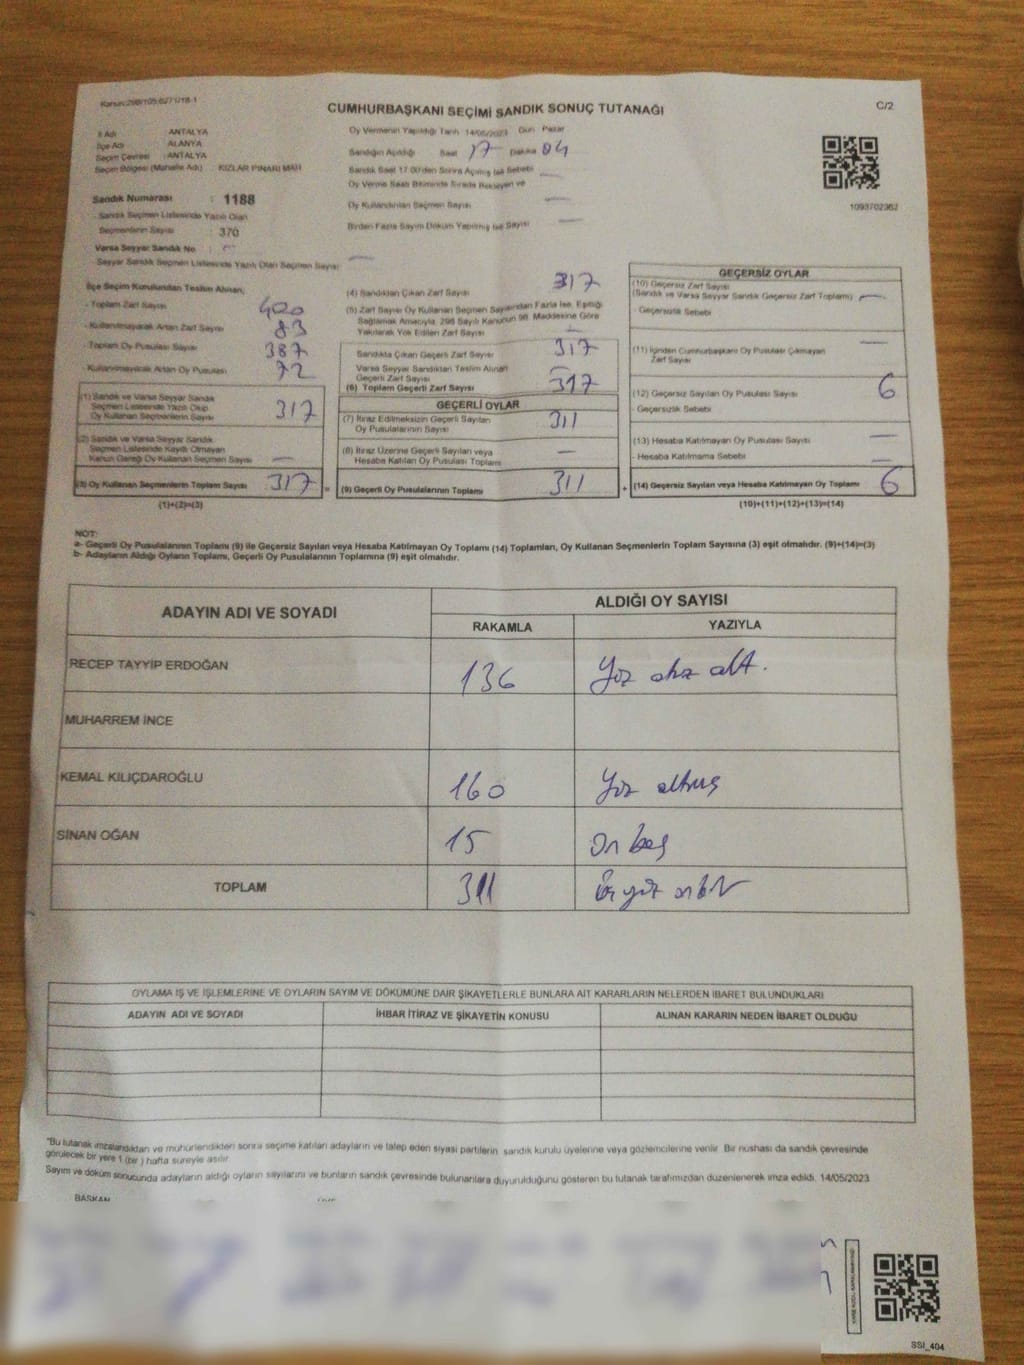 CUMHURBAŞKANI SEÇİMİ SANDIK SONUÇ TUTANAĞI
C/2
İl Adı ANTALYA
İlçe Adı ALANYA
Seçim Çevresi : ANTALYA
Seçim Bölgesi (Mahalle Adı) KIZLAR PINARI MAH
Sandık Numarası : 1188
- Sandık Seçmen Listesinde Yazılı Olan
Seçmenlerin Sayısı : 370
Varsa Seyyar Sandık No :
- Seyyar Sandık Seçmen Listesinde Yazılı Olan Seçmen Sayısı
Oy Vermenin Yapıldığı Tarih 14/05/2023 Gün Pazar
Sandığın Açıldığı Saat 17 Dakika 04
Sandık Saat 17.00'den Sonra Açılmış İse Sebebi —
Oy Verme Saati Bitiminde Sırada Bekleyen ve
Oy Kullandırılan Seçmen Sayısı —
Birden Fazla Sayım Döküm Yapılmış İse Sayısı —
1093702362
İlçe Seçim Kurulundan Teslim Alınan;
- Toplam Zarf Sayısı 400
- Kullanılmayarak Artan Zarf Sayısı 83
- Toplam Oy Pusulası Sayısı 387
- Kullanılmayarak Artan Oy Pusulası 72
(1) Sandık ve Varsa Seyyar Sandık
Seçmen Listesinde Yazılı Olup
Oy Kullanan Seçmenlerin Sayısı 317
(2) Sandık ve Varsa Seyyar Sandık
Seçmen Listesinde Kayıtlı Olmayan
Kanun Gereği Oy Kullanan Seçmen Sayısı —
(3) Oy Kullanan Seçmenlerin Toplam Sayısı 317
(1)+(2)=(3)
(4) Sandıktan Çıkan Zarf Sayısı 317
(5) Zarf Sayısı Oy Kullanan Seçmen Sayısından Fazla İse, Eşitliği
Sağlamak Amacıyla, 298 Sayılı Kanunun 98. Maddesine Göre
Yakılarak Yok Edilen Zarf Sayısı —
Sandıkta Çıkan Geçerli Zarf Sayısı 317
Varsa Seyyar Sandıktan Teslim Alınan
Geçerli Zarf Sayısı —
(6) Toplam Geçerli Zarf Sayısı 317
GEÇERLİ OYLAR
(7) İtiraz Edilmeksizin Geçerli Sayılan
Oy Pusulalarının Sayısı 311
(8) İtiraz Üzerine Geçerli Sayılan veya
Hesaba Katılan Oy Pusulası Toplamı —
= (9) Geçerli Oy Pusulalarının Toplamı 311
GEÇERSİZ OYLAR
(10) Geçersiz Zarf Sayısı
(Sandık ve Varsa Seyyar Sandık Geçersiz Zarf Toplamı) —
- Geçersizlik Sebebi
(11) İçinden Cumhurbaşkanı Oy Pusulası Çıkmayan
Zarf Sayısı —
(12) Geçersiz Sayılan Oy Pusulası Sayısı 6
- Geçersizlik Sebebi
(13) Hesaba Katılmayan Oy Pusulası Sayısı —
- Hesaba Katılmama Sebebi —
+ (14) Geçersiz Sayılan veya Hesaba Katılmayan Oy Toplamı 6
(10)+(11)+(12)+(13)=(14)
NOT:
a- Geçerli Oy Pusulalarının Toplamı (9) ile Geçersiz Sayılan veya Hesaba Katılmayan Oy Toplamı (14) Toplamları, Oy Kullanan Seçmenlerin Toplam Sayısına (3) eşit olmalıdır. (9)+(14)=(3)
b- Adayların Aldığı Oyların Toplamı, Geçerli Oy Pusulalarının Toplamına (9) eşit olmalıdır.
ADAYIN ADI VE SOYADI
ALDIĞI OY SAYISI
RAKAMLA YAZIYLA
RECEP TAYYİP ERDOĞAN 136 Yüz otuz altı.
MUHARREM İNCE
KEMAL KILIÇDAROĞLU 160 Yüz altmış
SİNAN OĞAN 15 On beş
TOPLAM 311 üç yüz on bir
OYLAMA İŞ VE İŞLEMLERİNE VE OYLARIN SAYIM VE DÖKÜMÜNE DAİR ŞİKAYETLERLE BUNLARA AİT KARARLARIN NELERDEN İBARET BULUNDUKLARI
ADAYIN ADI VE SOYADI İHBAR İTİRAZ VE ŞİKAYETİN KONUSU ALINAN KARARIN NEDEN İBARET OLDUĞU
"Bu tutanak imzalandıktan ve mühürlendikten sonra seçime katılan adayların ve talep eden siyasi partilerin sandık kurulu üyelerine veya gözlemcilerine verilir. Bir nüshası da sandık çevresinde
görülecek bir yere 1 (bir) hafta süreyle asılır.
Sayım ve döküm sonucunda adayların aldığı oyların sayılarını ve bunların sandık çevresinde bulunanlara duyurulduğunu gösteren bu tutanak tarafımızdan düzenlenerek imza edildi. 14/05/2023
BAŞKAN
SSI_404